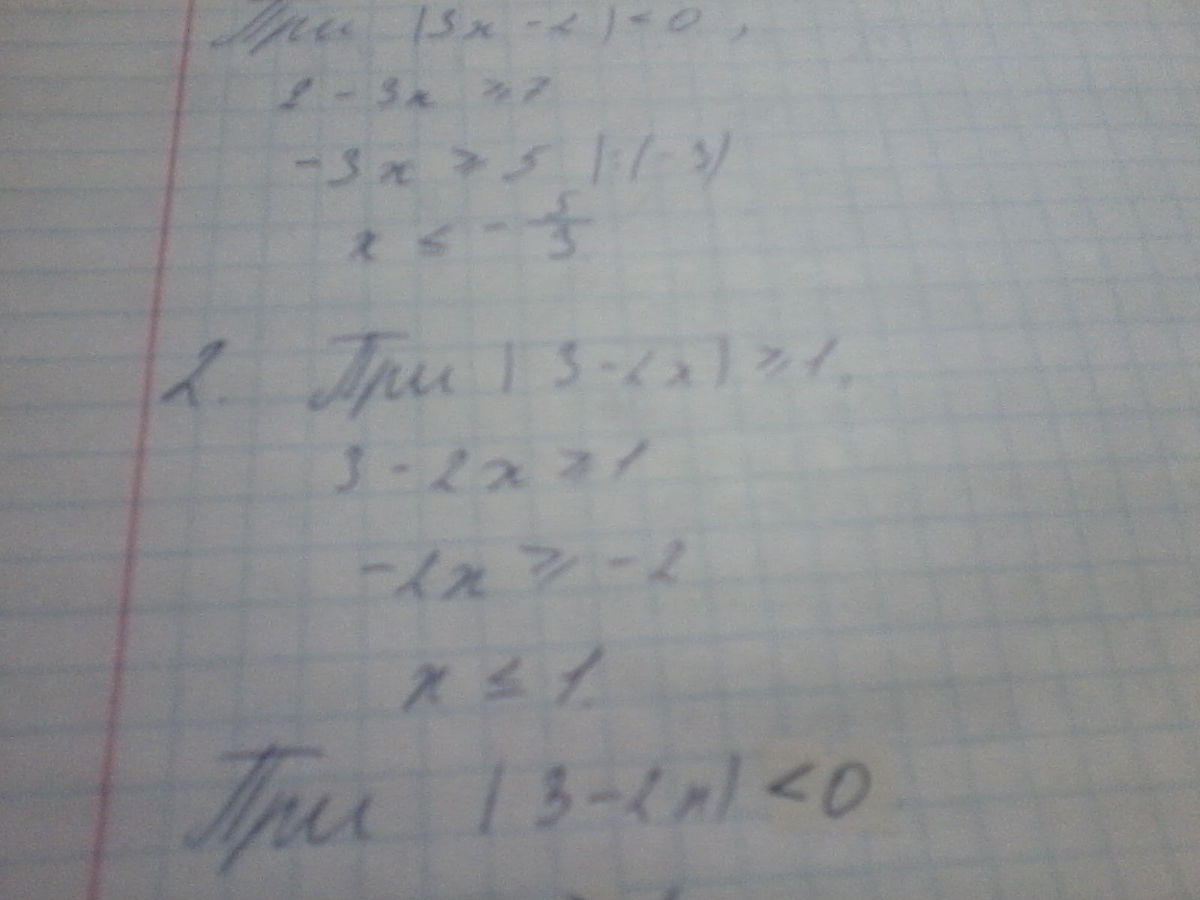 При |3x - 2| < 0,
2 - 3x ≥ 7
-3x ≥ 5 |:(-3)
x ≤ - 5/3
2. При |3 - 2x| ≥ 1.
3 - 2x ≥ 1
-2x ≥ -2
x ≤ 1.
При |3 - 2x| < 0